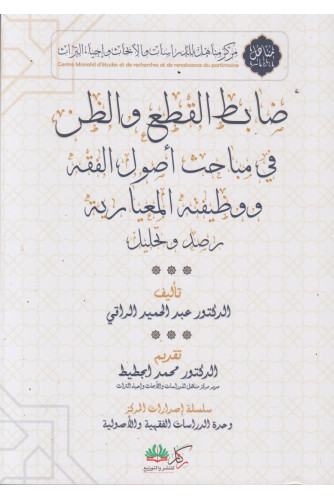 مركز مناهل للدراسات والأبحاث وإحياء التراث
Centre Manahil d'études et de recherche et de renaissance du partimoine
مناهل
ضابط القطع والظن
في مباحث أصول الفقه
ووظيفته المعيارية
رصد وتحليل
تأليف
الدكتور عبد الحميد الراقي
تقديم
الدكتور محمد ابجطيط
مدير مركز مناهل للدراسات والأبحاث وإحياء التراث
سلسلة إصدارات المركز
وحدة الدراسات الفقهية والأصولية
ركاز
للنشر والتوزيع